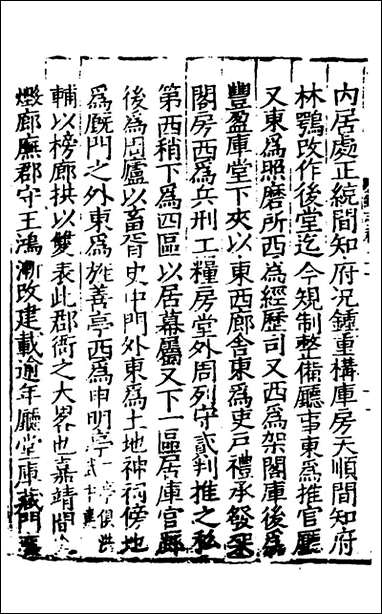 内居處正統間知府况鍾重構庫房天順間知府
林鶚改作後堂迄今規制整備廳事東爲推官廳
又東爲照磨所西爲經歷司又西爲架閣庫後爲
豐盈庫堂下夾以東西廊舍東爲吏戶禮承發
閣房西爲兵刑工糧房堂外周列守貳判推之私
第西稍下爲四區以居幕屬又下一區居庫官
後爲囬廬以畜胥史中門外東爲土地神祠傍地
爲厩門之外東爲旌善亭西爲申明亭
輔以榜廊拱以雙表此郡衙之大畧也嘉靖間
燬廊廡郡守王鴻漸改建載逾年廳堂庫藏門